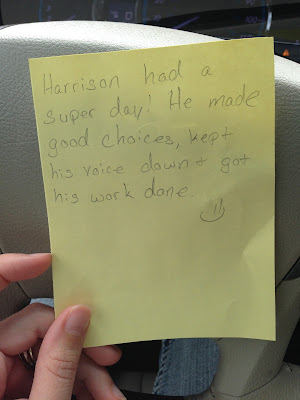 Harrison had a
super day! He made
good choices, kept
his voice down + got
his work done.